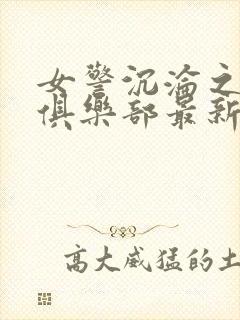 女警沉淪之
俱樂部最新
高大威猛的土